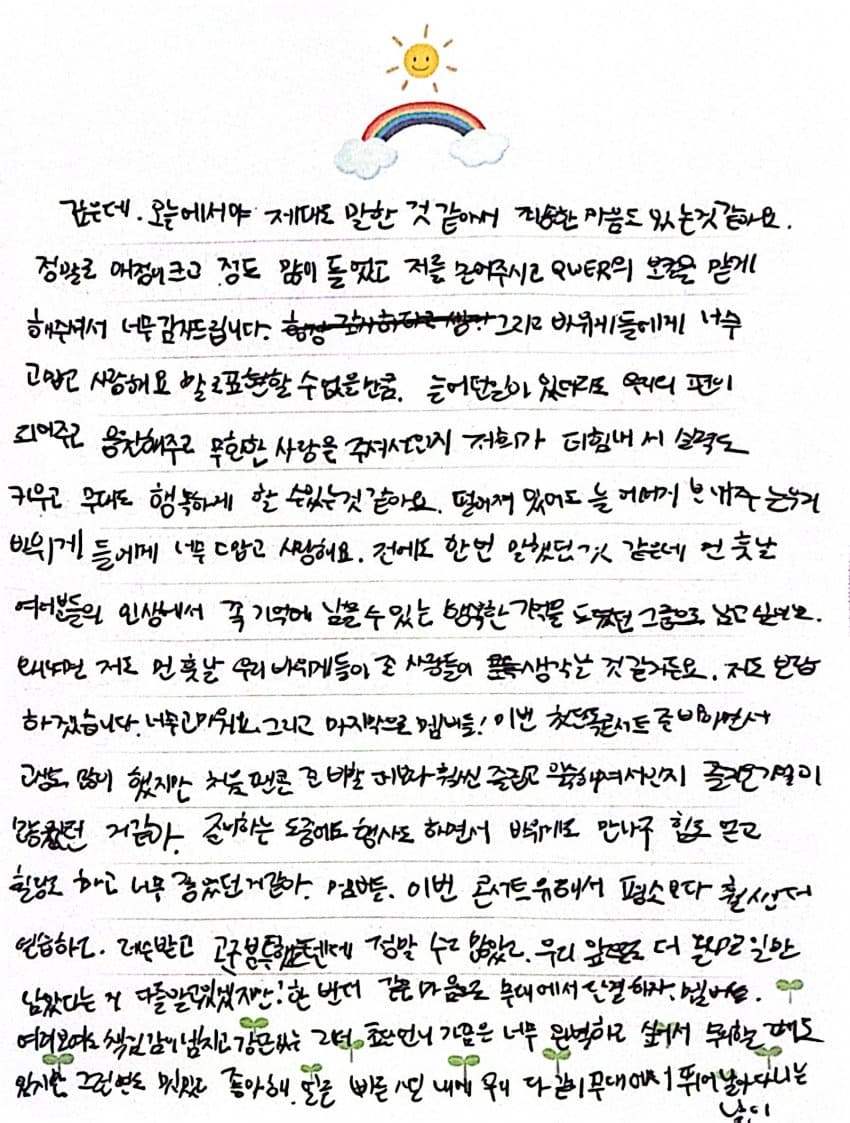 같은데. 오늘에서야 제대로 말한 것 같아서 죄송한 마음도 있는것 같아요.
정말로 애정이 크고 정도 많이 들었고 저를 믿어주시고 QWER의 보컬을 맡게
해주셔서 너무 감사드립니다. 그리고 바위게들에게 너무
고맙고 사랑해요 말로 표현할 수 없을 만큼. 늘 어떤일이 있더라도 우리의 편이
되어주고 응원해주고 무한한 사랑을 주셔서인지 저희가 더 힘내서 실력도
키우고 무대도 행복하게 할 수있는것 같아요. 떨어져 있어도 늘 에너지 보내주는 우리
바위게들에게 너무 고맙고 사랑해요. 전에도 한번 말했던 것 같은데 먼 훗날
여러분들의 인생에서 꼭 기억에 남을 수 있는 행복한 기억을 도왔던 그룹으로 남고 싶어요.
왜냐면 저도 먼 훗날 우리 바위게들이 준 사랑들이 문득 생각날 것 같거든요. 저도 보답
하겠습니다. 너무 고마워요. 그리고 마지막으로 멤버들! 이번 첫 단독콘서트 준비하면서
고생도 많이 했지만 처음 팬콘 준비할 때보다 훨씬 즐겁고 익숙해져서인지 즐거운 기억이
많았던 거 같아. 준비하는 도중에도 행사도 하면서 바위게도 만나구 힘도 얻고
힐링도 하고 너무 좋았던거 같아. 멤버들. 이번 콘서트 위해서 평소보다 훨씬 더
연습하고. 레슨받고 고군분투했을텐데 정말 수고 많았고. 우리 앞으로 더 놀라운 일만
남았다는 거 다들 알고 있겠지만! 한 번 더 같은 마음으로 무대에서 단결하자. 멤버들.
여려보여도 책임감이 넘치고 강단있는 그녀 쵸단언니 가끔은 너무 완벽하고 싶어서 뚝딱할 때도
있지만 그런 면도 멋있고 좋아해. 오른 빠른 시일 내에 우리 다 같이 무대에서 뛰어 날아다니는
날이